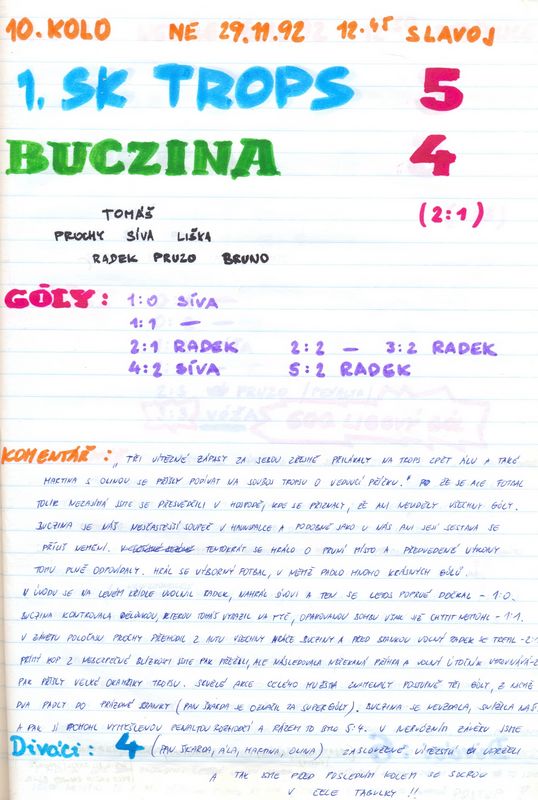 10. KOLO NE 29.11.92 12.45 SLAVOJ
1. SK TROPS 5
BUCZINA 4
(2:1)
TOMÁŠ
PROCHY SÍVA LIŠKA
RADEK PRUZO BRUNO
GÓLY: 1:0 SÍVA
1:1 —
2:1 RADEK 2:2 — 3:2 RADEK
4:2 SÍVA 5:2 RADEK
KOMENTÁŘ: „TŘI VÍTĚZNÉ ZÁPASY ZA SEBOU ZŘEJMĚ PŘILÁKALY NA TROPS ZPĚT ÁLU A TAKÉ
MARTINA S OLINOU SE PŘIŠLY PODÍVAT NA SOUBOJ TROPSU O VEDOUCÍ PŘÍČKU." ŽE SE ALE FOTBAL
TOLIK NEZAJÍMÁ JSME SE PŘESVĚDČILI V HOSPODĚ, KDE SE PŘIZNALY, ŽE ANI NEVIDĚLY VŠECHNY GÓLY.
BUCZINA JE NÁŠ NEJČASTĚJŠÍ SOUPEŘ V HANSPAULCE A PODOBNĚ JAKO U NÁS ANI JEJÍ SESTAVA SE
PŘÍLIŠ NEMĚNÍ. TENTOKRÁT SE HRÁLO O PRVNÍ MÍSTO A PŘEDVEDENÉ VÝKONY
TOMU PLNĚ ODPOVÍDALY. HRÁL SE VÝBORNÝ FOTBAL, V NĚMŽ PADLO MNOHO KRÁSNÝCH GÓLŮ.
V ÚVODU SE NA LEVÉM KŘÍDLE UVOLNIL RADEK, NAHRÁL SÍVOVI A TEN SE LETOS POPRVÉ DOČKAL - 1:0.
BUCZINA KONTROVALA DĚLOVKOU, KTEROU TOMÁŠ VYRAZIL NA TYČ, OPAKOVANOU BOMBU VŠAK JIŽ CHYTIT NEMOHL - 1:1.
V ZÁVĚRU POLOČASU PROCHY PŘEHODIL Z AUTU VŠECHNY HRÁČE BUCZINY A PŘED BRANKOU VOLNÝ RADEK SE TREFIL - 2:1
PŘÍMÝ KOP Z NEBEZPEČNÉ BLÍZKOSTI JSME PAK PŘEŽILI, ALE NÁSLEDOVALA NEČEKANÁ PŘIHRÁ A VOLNÝ ÚTOČNÍK VYROVNÁVÁ - 2:
PAK PŘIŠLY VELKÉ OKAMŽIKY TROPSU. SKVĚLÉ AKCE CELÉHO MUŽSTVA ZNAMENALY POSTUPNĚ TŘI GÓLY, Z NICHŽ
DVA PADLY DO PRÁZDNÉ BRANKY (PAN ŠKARDA JE OZNAČIL ZA SUPERGÓLY). BUCZINA SE NEVZDALA, SNÍŽILA NÁŠ
A PAK JÍ POMOHL VYMYŠLENOU PENALTOU ROZHODČÍ A RÁZEM TO BYLO 5:4. V NERVÓZNÍM ZÁVĚRU JSME
Diváci: 4 (PAN ŠKARDA, ÁLA, MARTINA, OLINA) ZASLOUŽENÉ VÍTĚZSTVÍ UDRŽELI
A TAK JSME PŘED POSLEDNÍM KOLEM SE SLÁVOU
V ČELE TABULKY !!